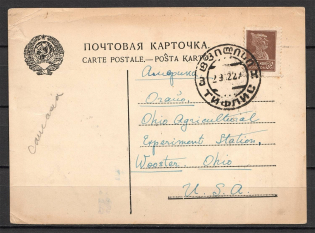 ПОЧТОВАЯ КАРТОЧКА.
CARTE POSTALE.—POŠTA KARTO
ТИФЛИС
Америка
Огайо,
Ohio Agricultural
Experiment Station,
Wooster, Ohio
U. S. A